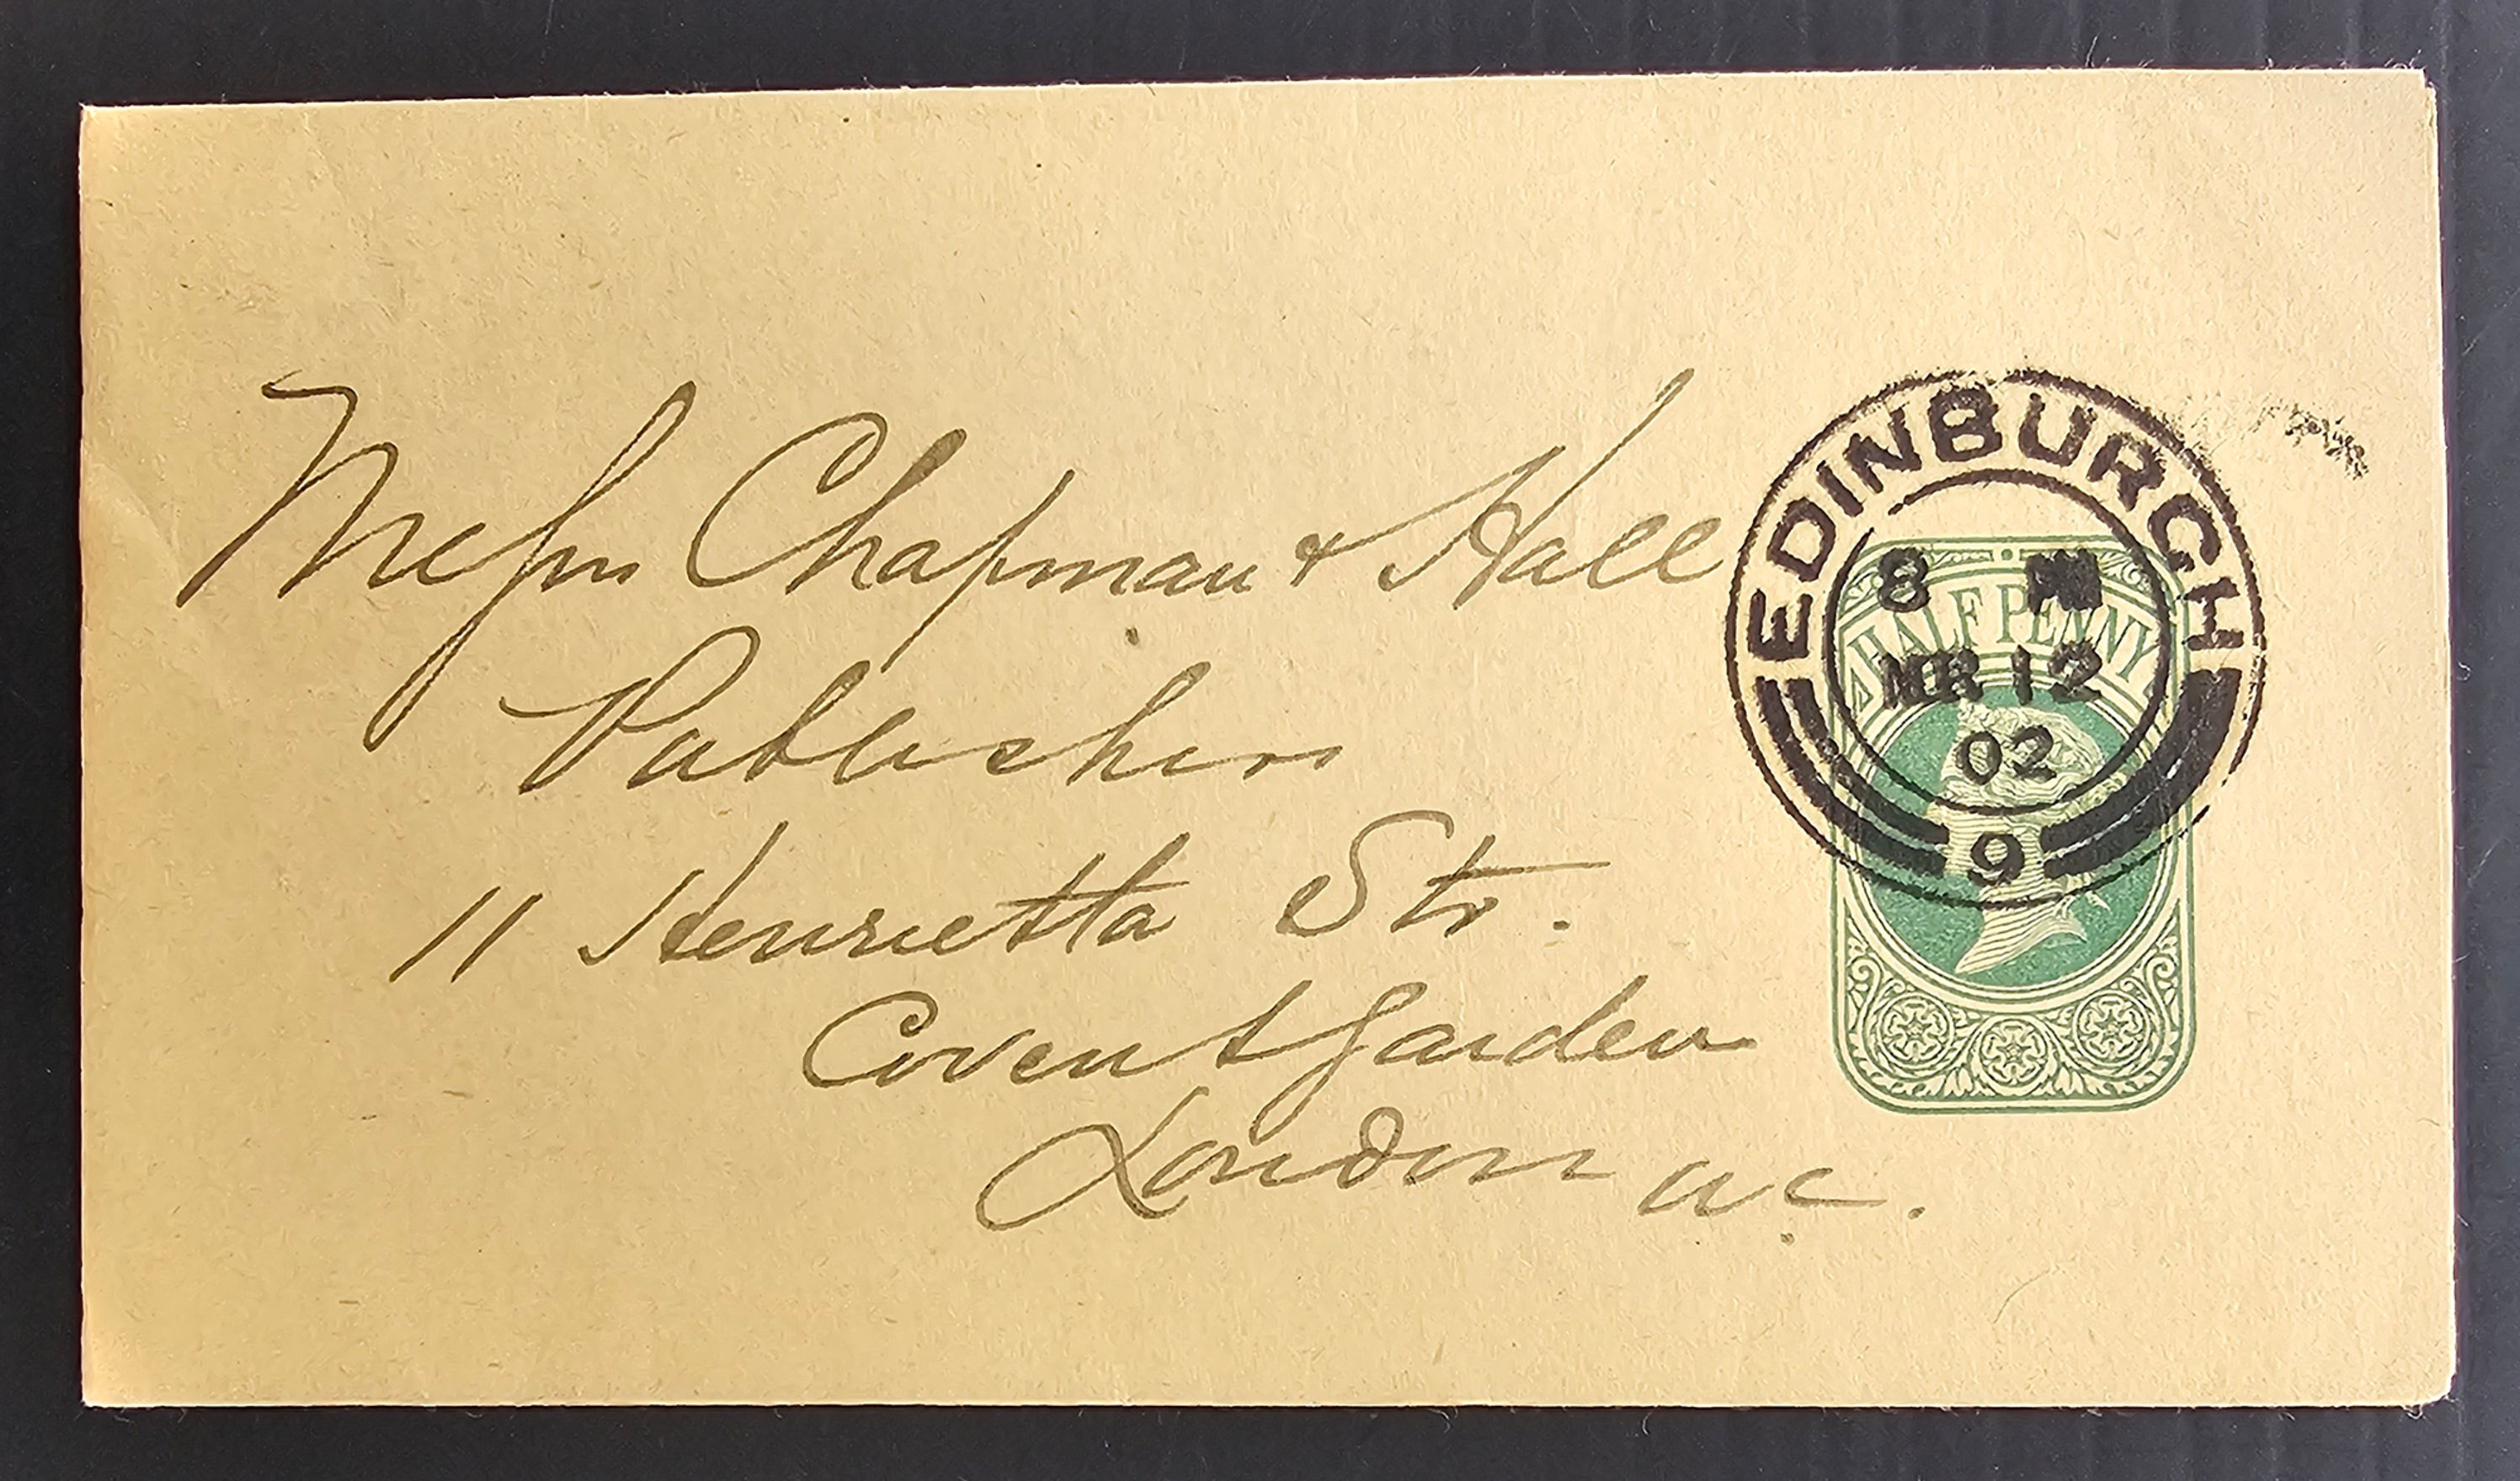 Messrs Chapman & Hall
Publishers
11 Henrietta Str.
Covent Garden
London W.C.
EDINBURGH
8 PM
MR 12
02
9
HALFPENNY